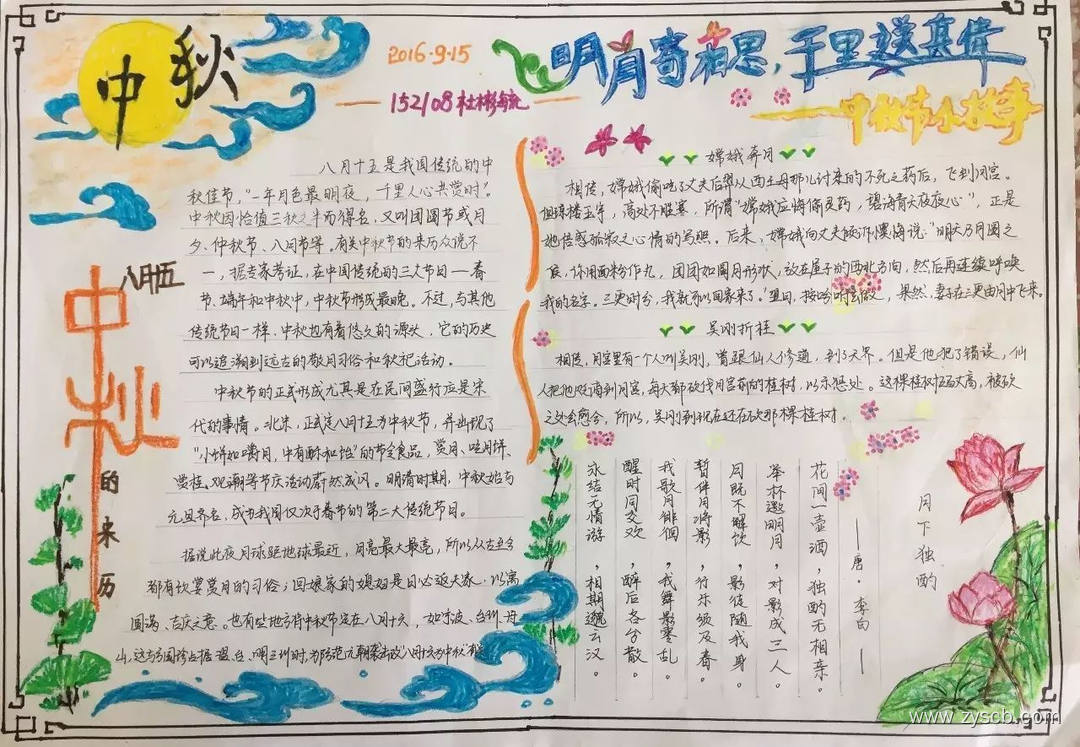 中秋
2016.9.15
152108
明月寄相思,千里送真情
中秋节小故事
八月十五
中秋
的来历
八月十五是我国传统的中
秋佳节,"一年月色最明夜,千里人心共赏时"。
中秋因恰值三秋之半而得名,又叫团圆节或月
夕、仲秋节、八月节等。有关中秋节的来历众说不
一,据专家考证,在中国传统的三大节日——春
节、端午和中秋中,中秋节形成最晚。不过,与其他
传统节日一样,中秋也有着悠久的源头,它的历史
可以追溯到远古的敬月习俗和秋祀活动。
中秋节的正式形成尤其是在民间盛行应是宋
代的事情。北宋,正式定八月十五为中秋节,并出现了
"小饼如嚼月,中有酥和饴"的节令食品,赏月、吃月饼、
赏桂、观潮等节庆活动蔚然成风。明清时期,中秋始与
元旦齐名,成为我国仅次于春节的第二大传统节日。
据说此夜月球距地球最近,月亮最大最亮,所以从古至今
都有饮宴赏月的习俗;回娘家的媳妇是日必返夫家,以寓
圆满、吉庆之意。也有些地方将中秋节定在八月十六,如宁波、台州、舟
山,这与方国珍占据温、台、明三州时,
嫦娥奔月
相传,嫦娥偷吃了丈夫后羿从西王母那儿讨来的不死之药后,飞到月宫。
但琼楼玉宇,高处不胜寒,所谓"嫦娥应悔偷灵药,碧海青天夜夜心",正是
她倍感孤寂之心情的写照。后来,嫦娥向丈夫倾诉懊悔说:"明天乃月圆之
候,你用面粉作丸,团团如圆月形状,放在屋子的西北方向,然后再连续呼唤
我的名字。三更时分,我就可以回家来了。"翌日,按吩咐去做,果然,妻子在三更由月中飞来。
吴刚折桂
相传,月宫里有一个人叫吴刚,曾跟仙人修道,到了天界。但是他犯了错误,仙
人把他贬谪到月宫,每天都砍伐月宫前的桂树,以示惩处。这棵桂树五百丈高,被砍
之处会愈合,所以,吴刚到现在还在砍那棵桂树。
月下独酌
——唐·李白——
花间一壶酒,独酌无相亲。
举杯邀明月,对影成三人。
月既不解饮,影徒随我身。
暂伴月将影,行乐须及春。
我歌月徘徊,我舞影零乱。
醒时同交欢,醉后各分散。
永结无情游,相期邈云汉。
www.zyscb.com